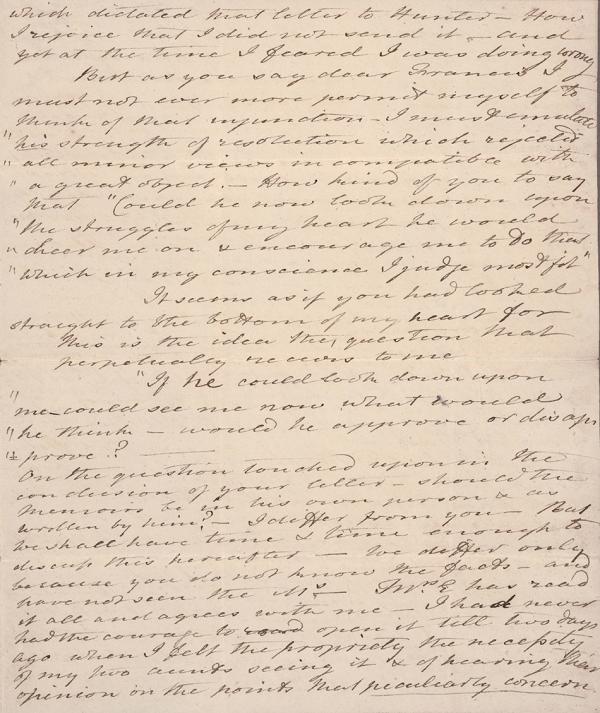 which dictated that letter to Hunter – How
I rejoice that I did not send it – and
yet at the time I feared I was doing wrong
But as you say dear Francis I
must not ever more permit myself to
think of that injunction – I must emulate
"his strength of resolution which rejected
" all minor views incompatible with
" a great object. – How kind of you to say
that "Could he now look down upon
"the struggles of my heart he would
" cheer me on & encourage me to do that
"which in my conscience I judge most fit"
It seems as if you had looked
straight to the bottom of my heart for
this is the idea the question that
perpetually recurs to me
"If he could look down upon
" me – could see me now what would
" he think – would he approve or disap
" prove? –
On the question touched upon in the
conclusion of your letter – should the
memoirs be in his own person & as
written by him? – I differ from you – But
we shall have time & time enough to
discuss this hereafter – We differ only
because you do not know the facts – and
have not seen the Ms – Mrs E has read
it all and agrees with me – I had never
had the courage to read open it till two days
ago when I felt the propriety the necessity
of my two aunts seeing it & of hearing their
opinion on the points that peculiarly concern